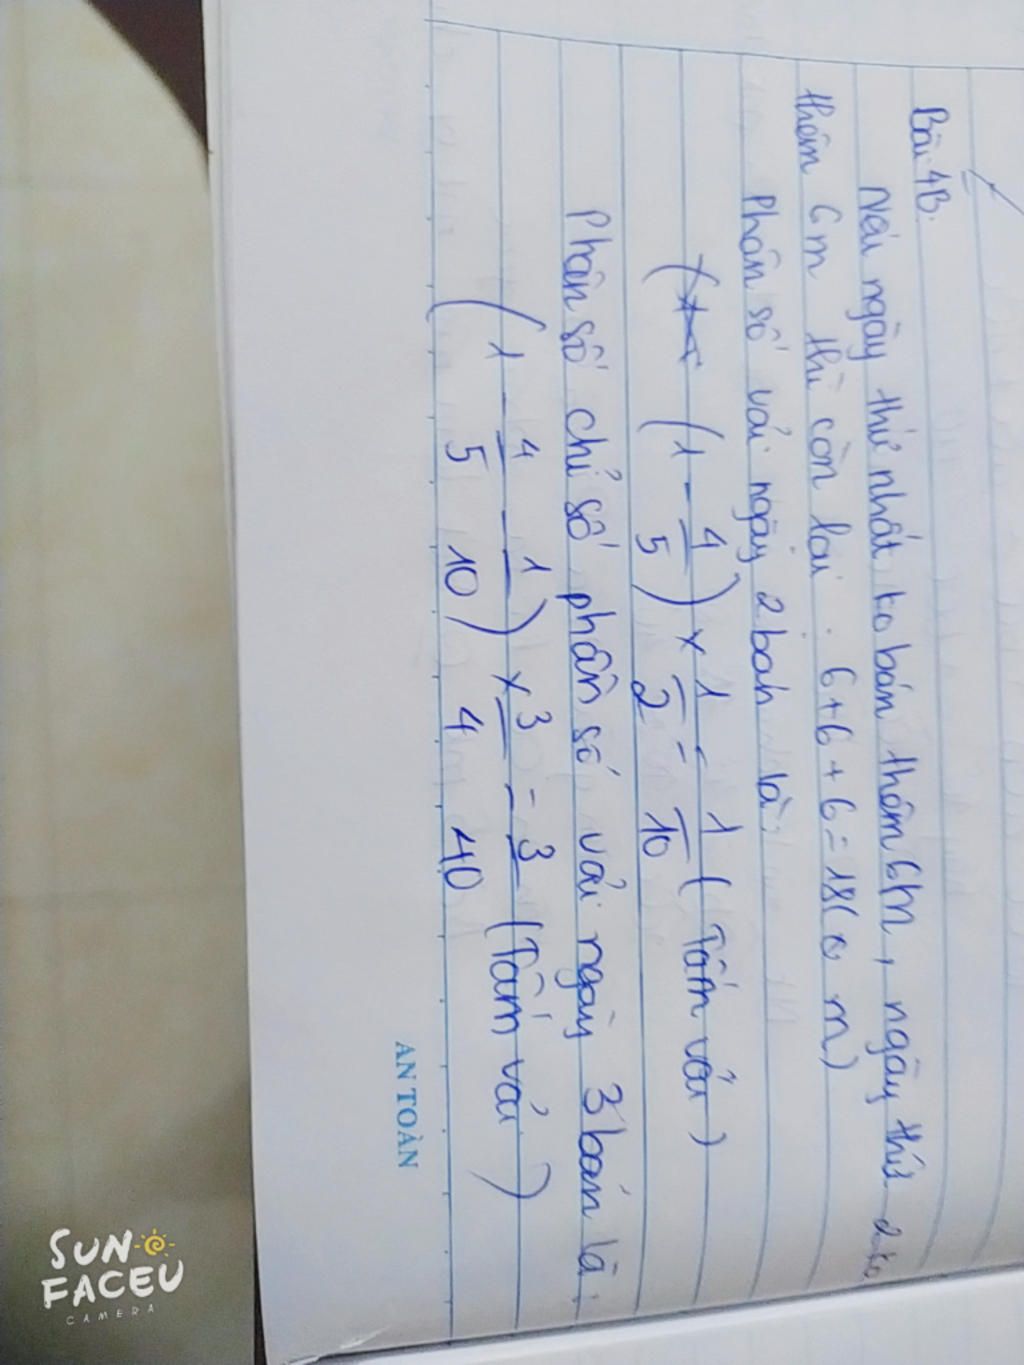 Bài 4B.
Nếu ngày thứ nhất ko bán thêm 6m, ngày thứ 2 ko
thêm 6m thì còn lại. 6+6+6=18( m)
Phân số vải ngày 2 bán là:
(1 - 4/5) x 1/2 = 1/10 ( Tấm vải )
Phân số chỉ số phân số vải ngày 3 bán là:
( 1 - 4/5 - 1/10) x 3/4 = 3/40 (Tấm vải )
AN TOÀN
SUN FACEU
CAMERA